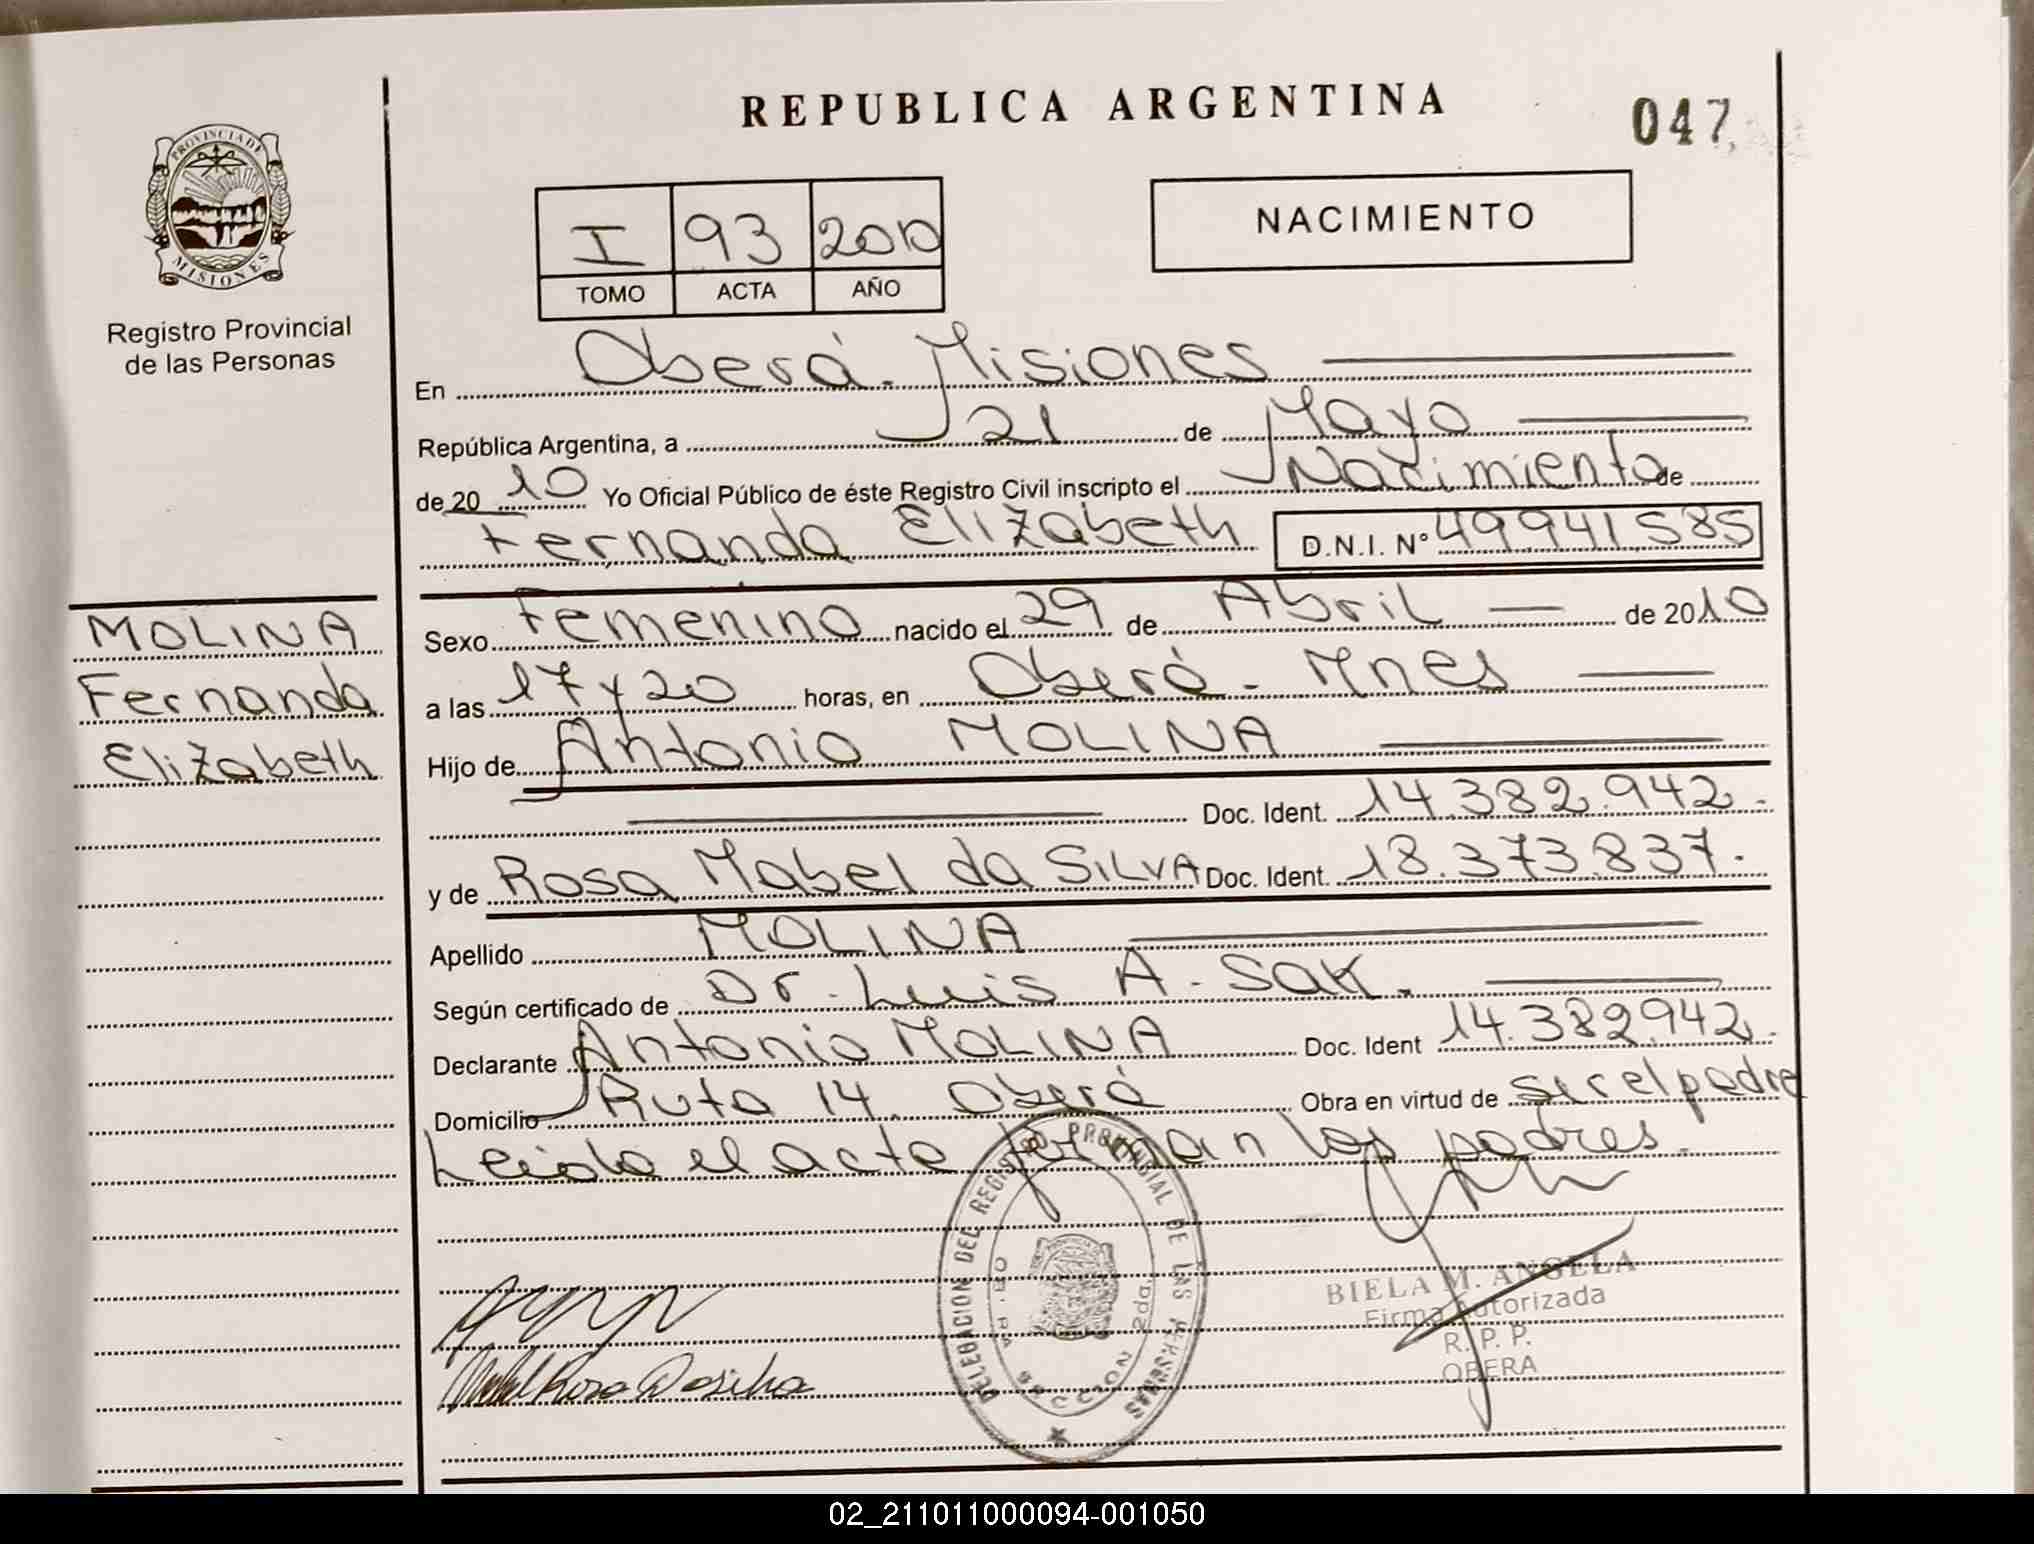 REPUBLICA ARGENTINA
047
PROVINCIA DE
MISIONES
Registro Provincial
de las Personas
I 93 2010
TOMO ACTA AÑO
NACIMIENTO
En Oberá. Misiones
República Argentina, a 21 de Mayo
de 20 10 Yo Oficial Público de éste Registro Civil inscripto el Nacimiento de
Fernanda Elizabeth D.N.I. Nº 49941585
MOLINA
Fernanda
Elizabeth
Sexo Femenino nacido el 29 de Abril de 2010
a las 17 y 20 horas, en Oberá - Mnes
Hijo de Antonio MOLINA
Doc. Ident. 14.382.942.
y de Rosa Mabel da SILVA Doc. Ident. 18.373.837.
Apellido MOLINA
Según certificado de Dr. Luis A. Sak.
Declarante Antonio MOLINA Doc. Ident 14.382.942.
Domicilio Ruta 14. Oberá Obra en virtud de ser el padre
Leida el acta firman los padres.
DELEGACION DEL REGISTRO PROVINCIAL DE LAS PERSONAS
OBERA SECCION 2da.
BIELA M. ANGELA
Firma Autorizada
R. P. P.
OBERA
Mabel Rosa Dasilva
02_211011000094-001050